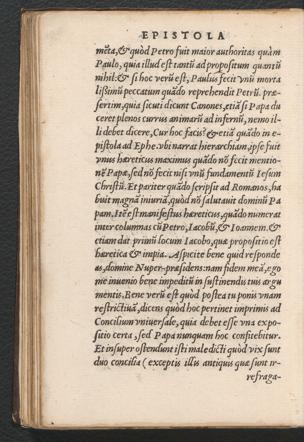 EPISTOLA
mẽta, & quòd Petro fuit maior authoritas quàm
Paulo, quia illud est tantũ ad propositum quantũ
nihil: & si hoc verũ est, Paulus fecit vnũ morta
lissimũ peccatum quãdo reprehendit Petrũ. præ-
sertim, quia sicuti dicunt Canones, etiã si Papa du
ceret plenos currus animarũ ad infernũ, nemo il-
li debet dicere, Cur hoc facis? & etiã quãdo in e-
pistola ad Ephe. vbi narrat hierarchiam, ipse fuit
vnus hæreticus maximus quãdo nõ fecit mentio-
nẽ Papæ, sed nõ fecit nisi vnũ fundamentũ Iesum
Christũ. Et pariter quãdo scripsit ad Romanos, ha
buit magnã iniuriã, quòd nõ salutauit dominũ Pa
pam. Itẽ est manifestus hæreticus, quãdo numerat
inter columnas cũ Petro, Iacobũ, & Ioannem. &
etiam dat primũ locum Iacobo, quæ propositio est
hæretica & impia. Aspicite bene quid responde
as, domine Nuper-præsidens: nam fidem meã, ego
me inuenio bene impeditũ in sustinendis tuis argu
mentis. Bene verũ est quòd postea tu ponis vnam
restrictiuã, dicens quòd hoc pertinet imprimis ad
Concilium vniuersale, quia debet esse vna expo-
sitio certa, sed Papa nunquam hoc confitebitur.
Et insuper ostendunt isti maledicti quòd vix sunt
duo concilia (exceptis illis antiquis quæ sunt ir-
refraga-